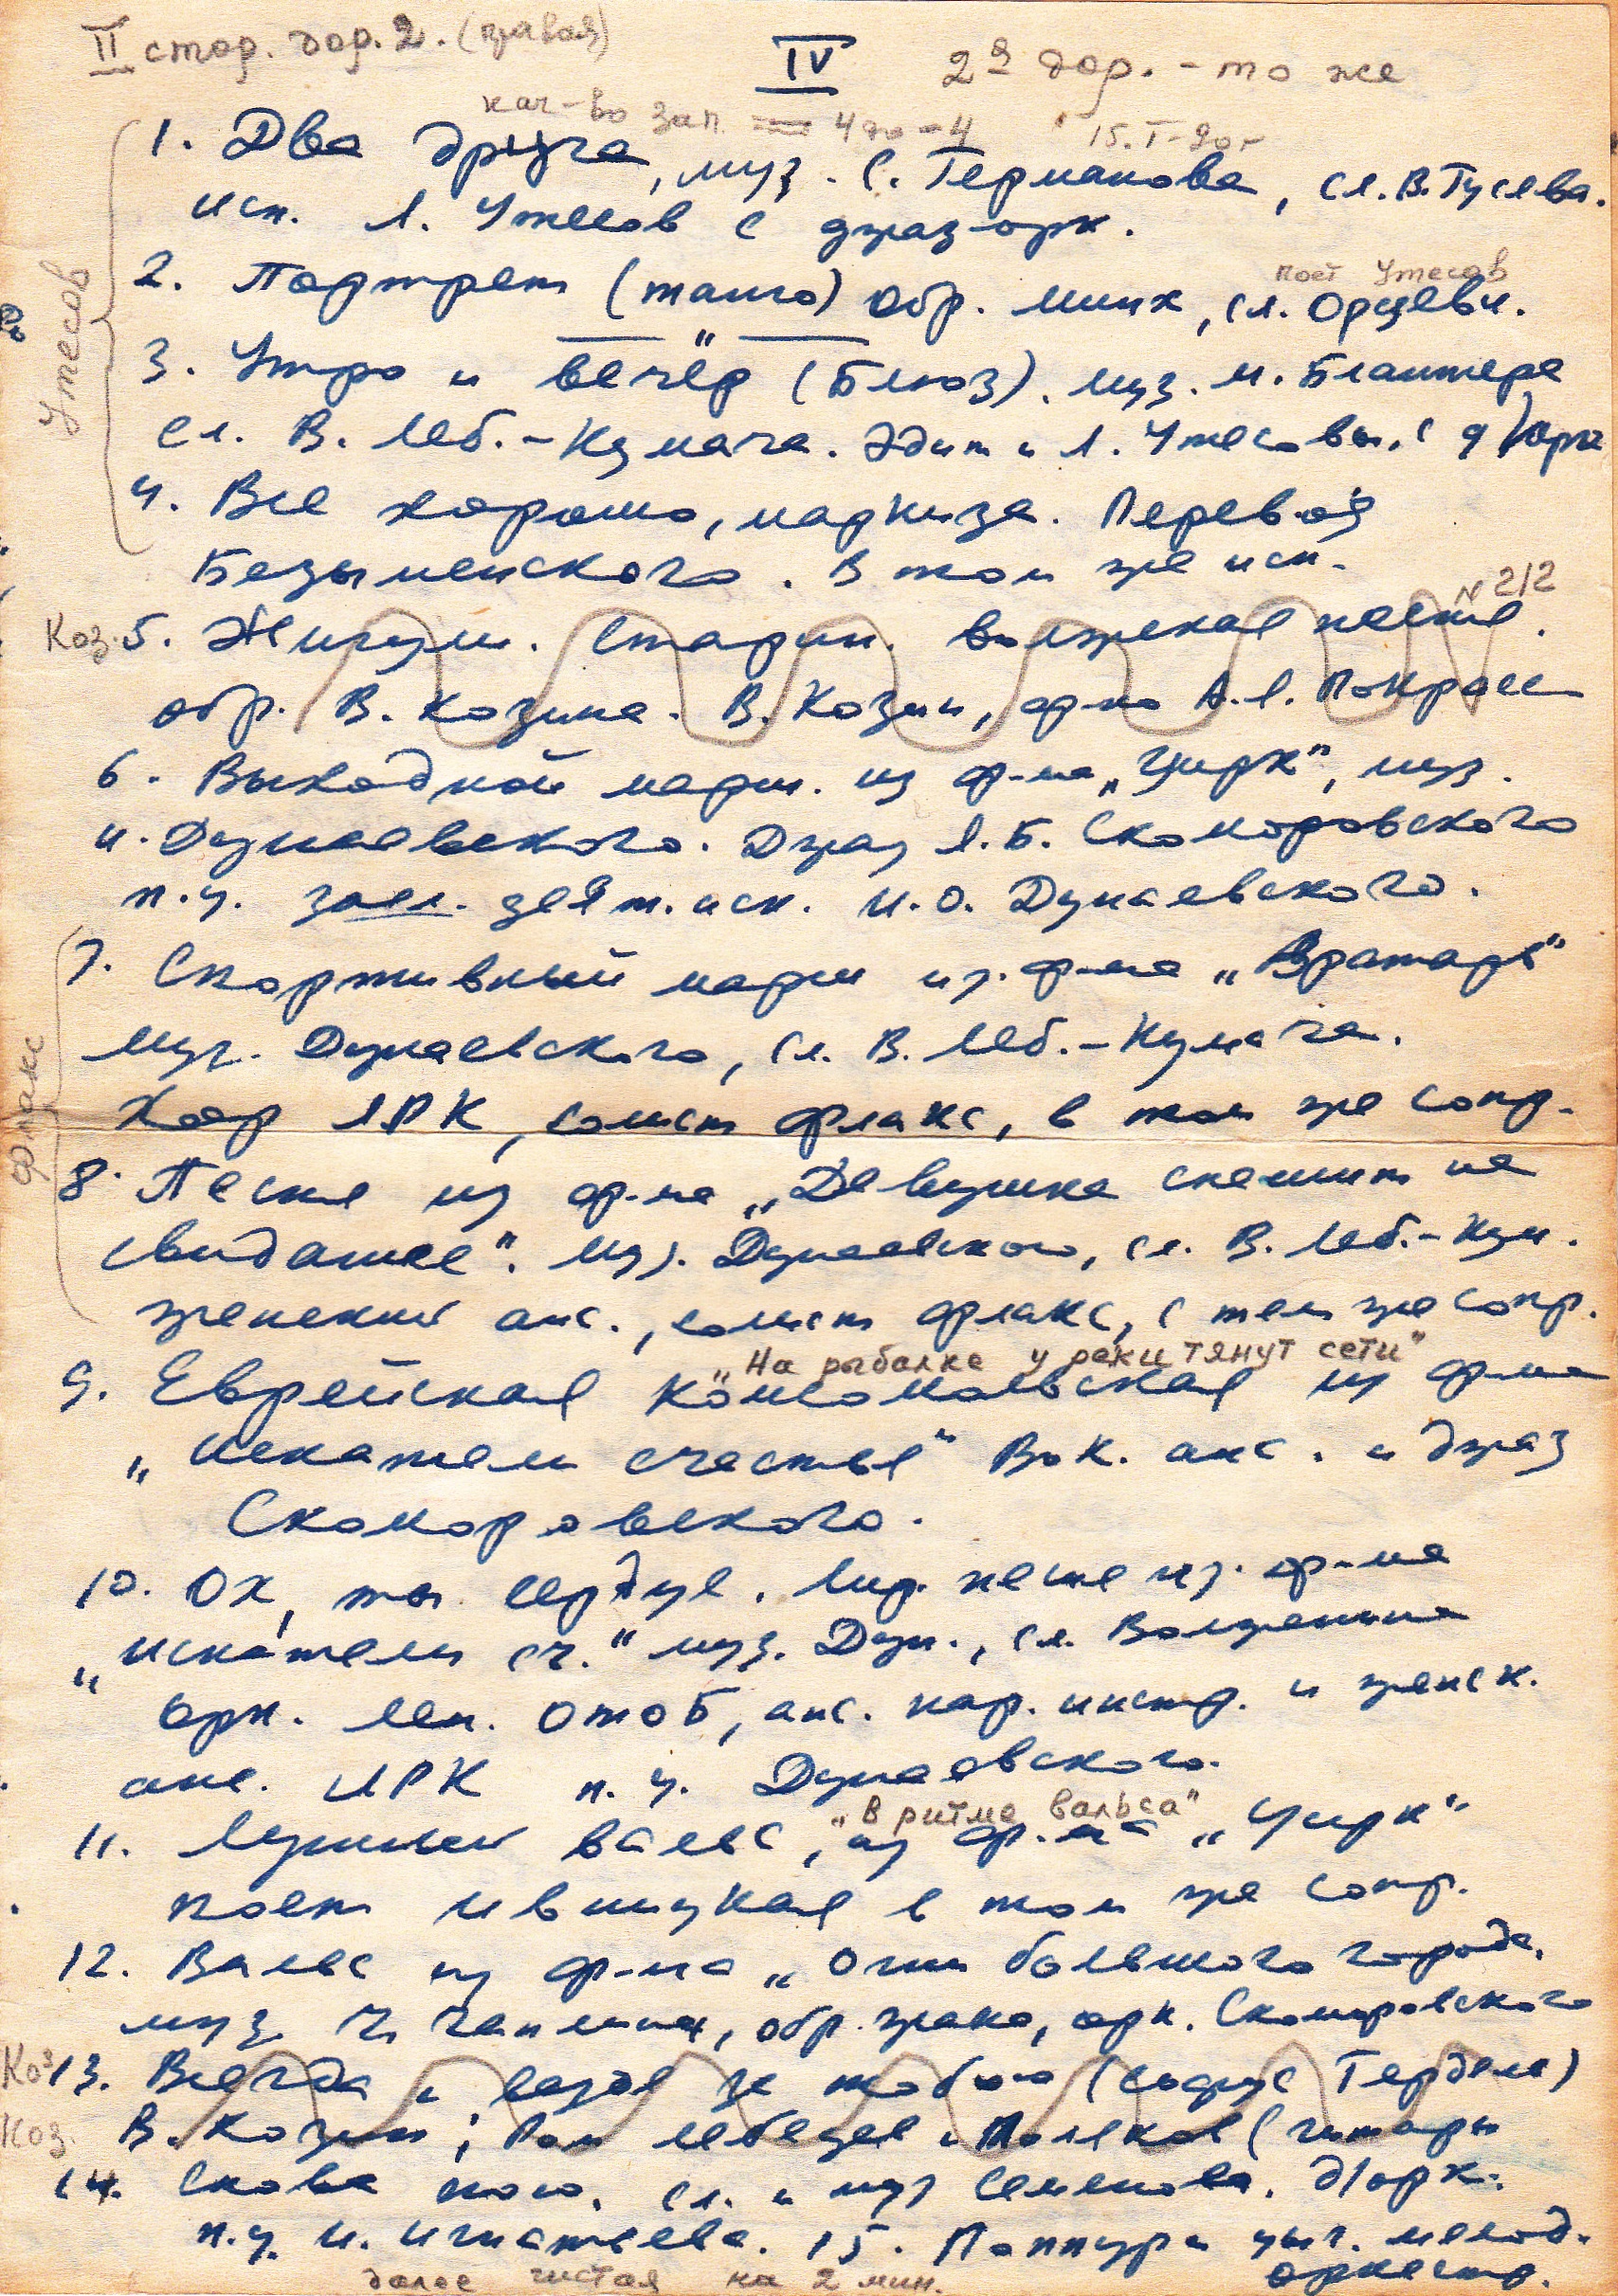 II стор. дор. 2. (правая)
IV
2я дор. - то же
кач-во зап. 4 до -4
15.I-90г
1. Два друга, муз. С. Германова, сл. В. Гусева.
исп. Л. Утесов с джаз-орк.
поет Утесов
2. Портрет (танго) обр. Минх, сл.
3. Утро и вечер (Блюз). муз. М. Блантера
сл. В. Леб.-Кумача. Эдит и Л. Утесовы, с д/орк
4. Все хорошо, маркиза. Перевод
Безыменского. В том же исп.
Утесов
№ 212
Коз. 5. Жигули. Старин. волжская песня.
обр. В. Козина. В. Козин, ф-но А.Я. Покрасс
6. Выходной марш. из ф-ма „Цирк", муз.
И. Дунаевского. Джаз Я.Б. Скоморовского
п.у. засл. деят. иск. И.О. Дунаевского.
7. Спортивный марш из. ф-ма „Вратарь"
муз. Дунаевского, сл. В. Леб.-Кумача.
Хор ЛРК, солист Флакс, в том же сопр.
Флакс
8. Песня из ф-ма „Девушка спешит на
свидание". Муз. Дунаевского, сл. В. Леб.-Кум.
женский анс., солист Флакс, с тем же сопр.
„На рыбалке у реки тянут сети"
9. Еврейская комсомольская из ф-ма
„Искатели счастья" Вок. анс. и джаз
Скоморовского.
10. Ох, ты сердце. Лир. песня из. ф-ма
„Искатели сч." муз. Дун., сл. Волженина
орк. Лен. ОТОБ, анс. нар. инстр. и женск.
анс. ЛРК п.у. Дунаевского.
„В ритме вальса"
11. Лунный вальс, из ф-ма „Цирк"
поет Ивицкая в том же сопр.
12. Вальс из ф-ма „Огни большого города.
муз Ч. Чаплина, обр. Жака, орк. Скоморовского
Коз 13. Всегда и везде за тобою
Коз. В. Козин; Ром Лебедев и Поляков (гитары
14. Снова пою. сл. и муз Семенова. д/орк.
п.у. И. Игнатьева. 15. Поппури цыг. мелод.
оркестр.
далее чистая на 2 мин.